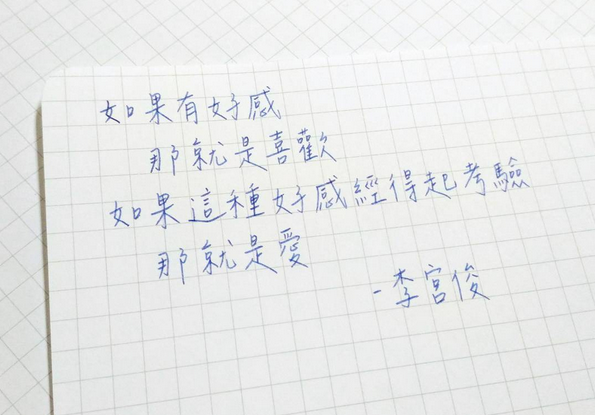 如果有好感
那就是喜歡
如果這種好感經得起考驗
那就是愛
-李宮俊